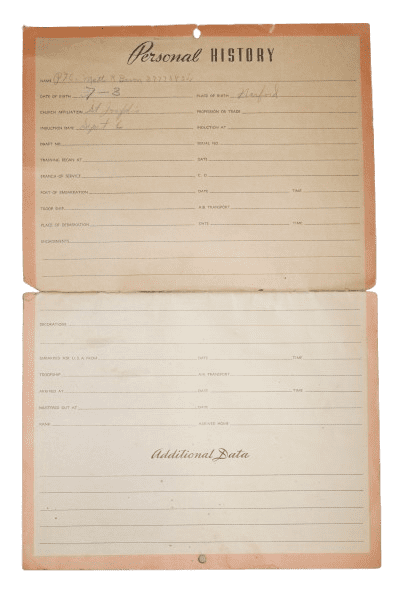 Personal HISTORY
NAME Pfc. Matt
DATE OF BIRTH 7-3 PLACE OF BIRTH
CHURCH AFFILIATION St. PROFESSION OR TRADE
INDUCTION DATE Sept 6 INDUCTION AT
DRAFT NO. SERIAL NO.
TRAINING BEGAN AT DATE
BRANCH OF SERVICE
PORT OF EMBARKATION DATE TIME
TROOP SHIP AIR TRANSPORT
PLACE OF DEBARKATION DATE TIME
ASSIGNMENTS
DECORATIONS
DATE TIME
TROOPSHIP AIR TRANSPORT
ARRIVED AT DATE TIME
MUSTERED OUT AT DATE
RANK ARRIVED HOME
Additional Data